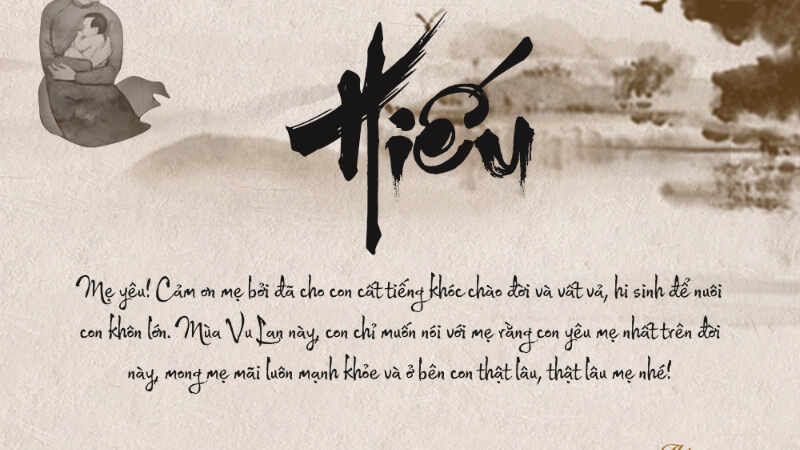 Hiếu
Mẹ yêu! Cảm ơn mẹ bởi đã cho con cất tiếng khóc chào đời và vất vả, hi sinh để nuôi
con khôn lớn. Mùa Vu Lan này, con chỉ muốn nói với mẹ rằng con yêu mẹ nhất trên đời
này, mong mẹ mãi luôn mạnh khỏe và ở bên con thật lâu, thật lâu mẹ nhé!